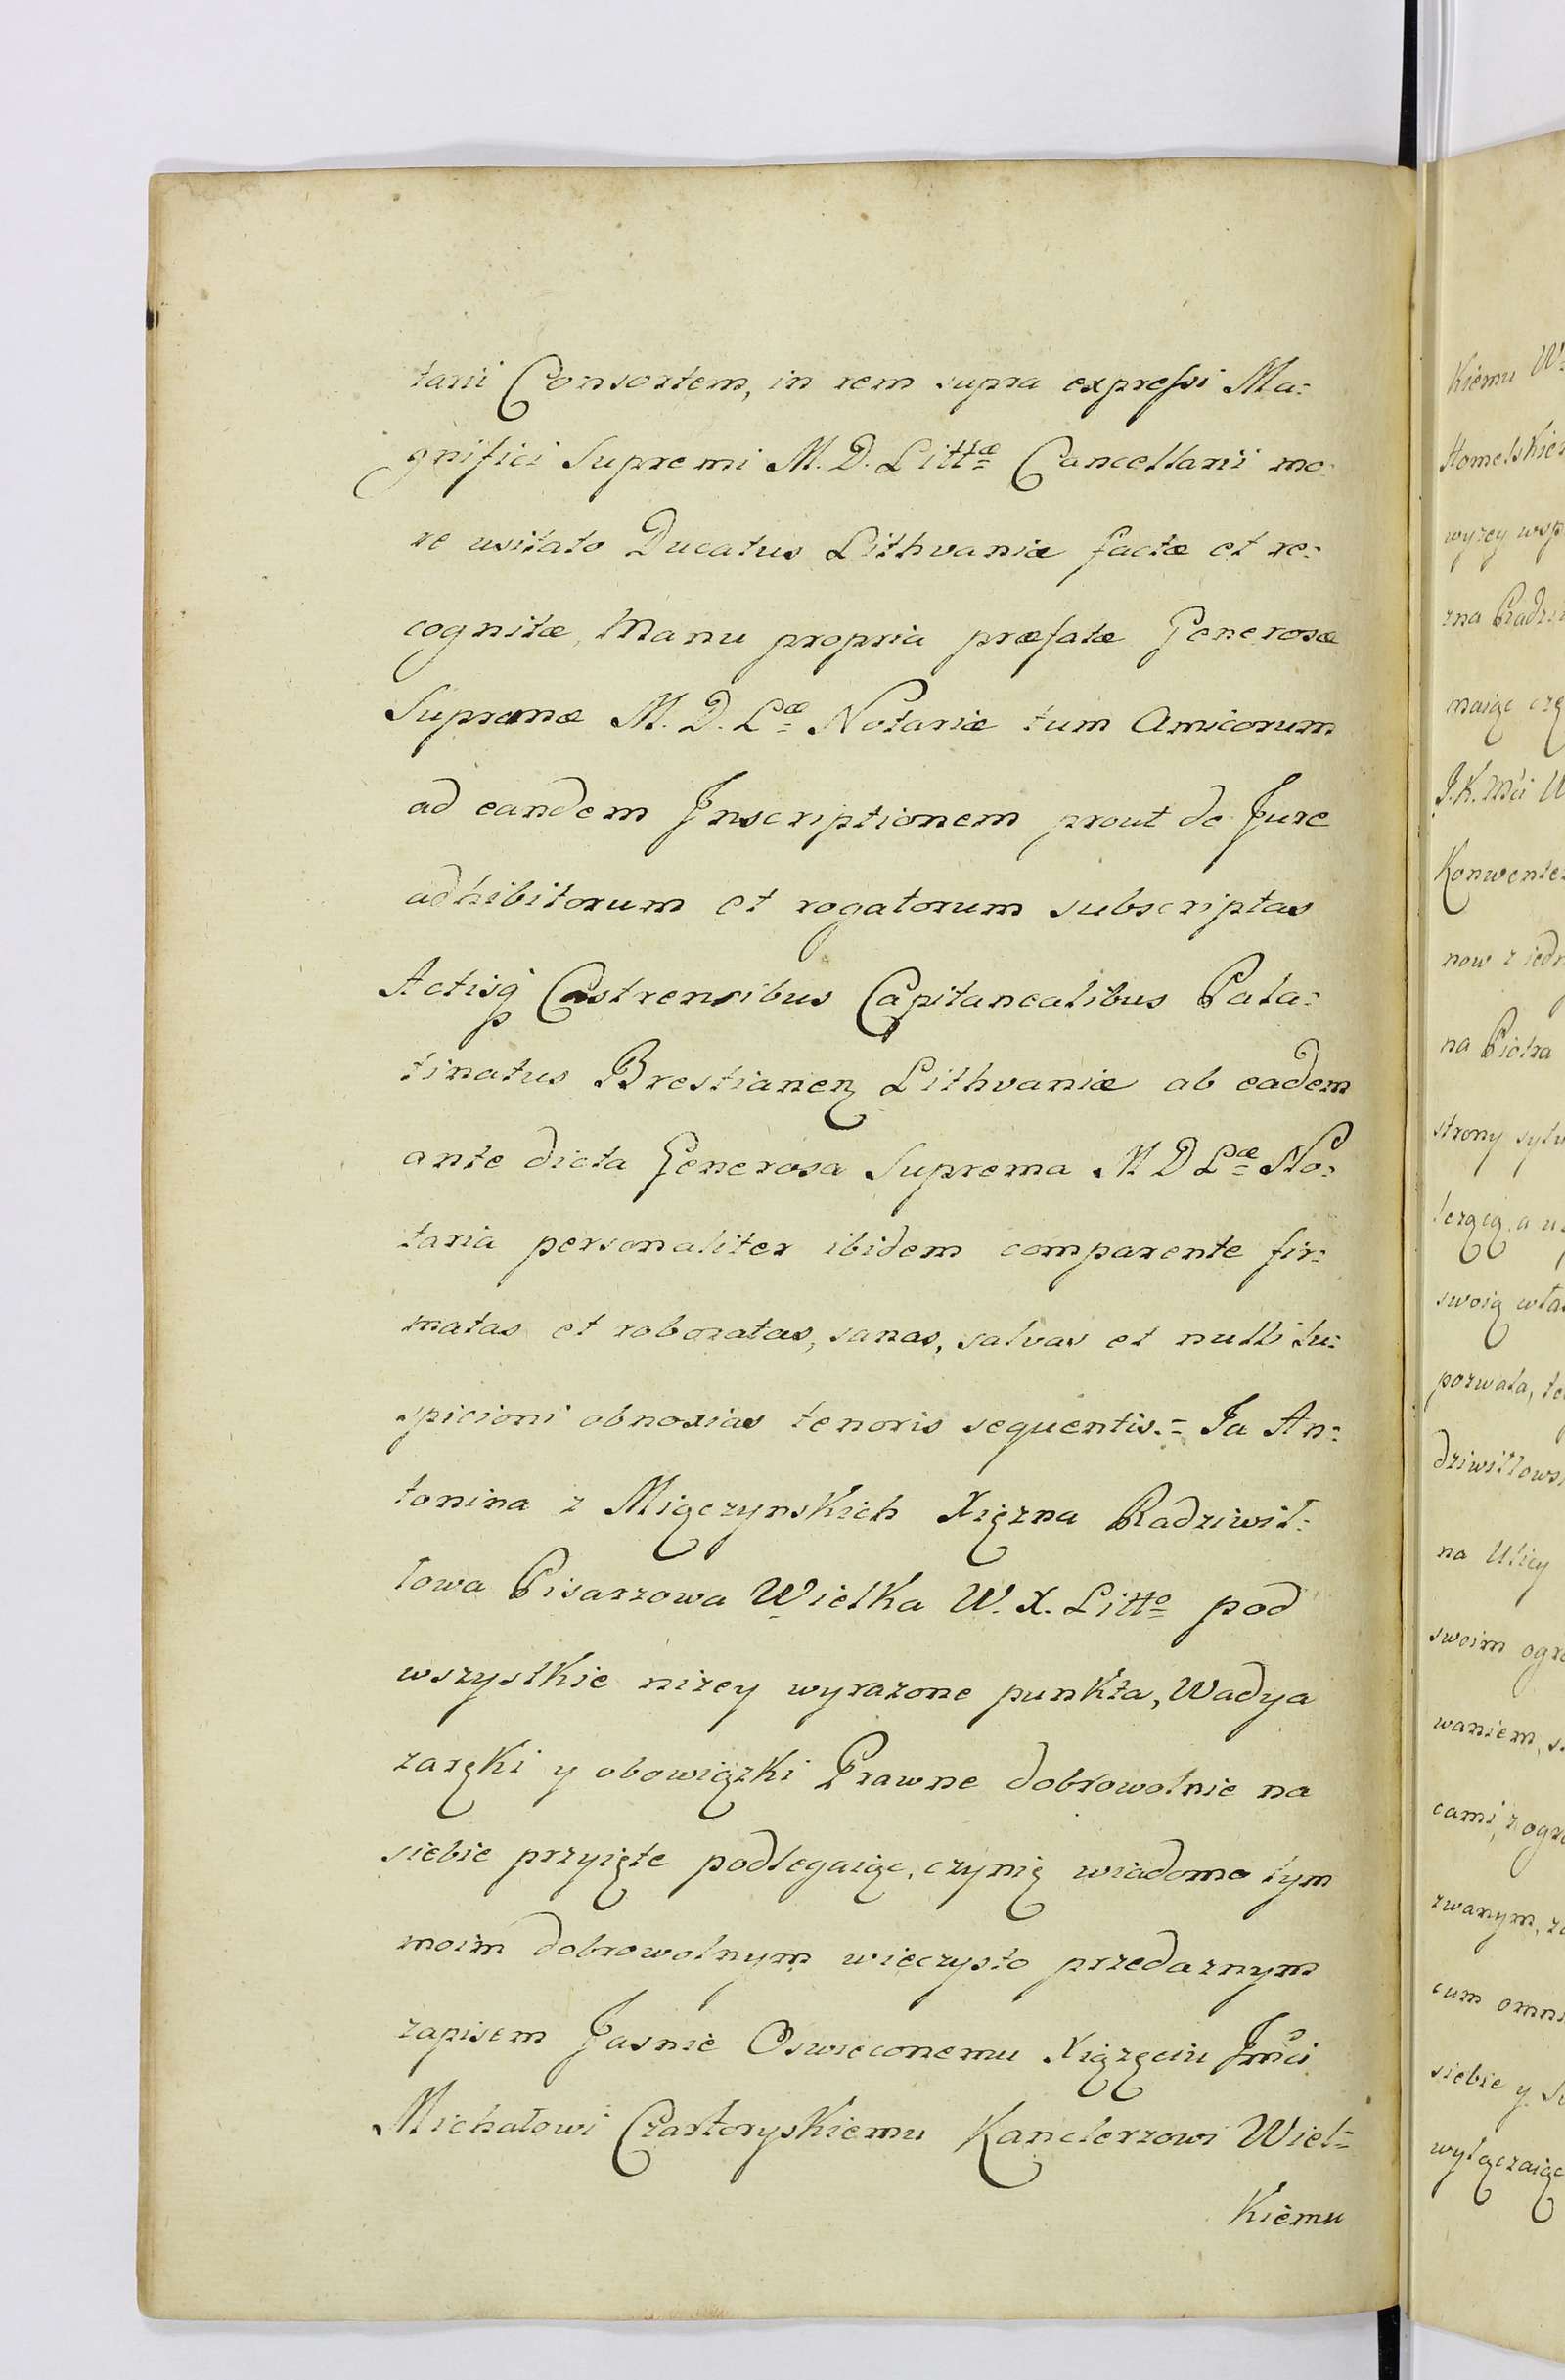 tarii Consortem, in rem supra expressi Ma:
gnifici Supremi M. D. Littæ Cancellarii mo:
re usitato Ducatus Lithvaniæ factæ et re:
cognitæ, Manu propria præfatæ Generosæ
Supremæ M. D. Læ Notariæ tum Amicorum
ad eandem Inscriptionem prout de Jure
adhibitorum et rogatorum subscriptas
Actisq Castrensibus Capitanealibus Pala:
tinatus Brestianen Lithvaniæ ab eadem
ante dicta Generosa Suprema M D Læ No:
taria personaliter ibidem comparente fir:
matas et roboratas, sanas, salvas et nulli su:
spicioni obnoxias tenoris sequentis.= Ja An:
tonina z Miączynskich Xiężna Radziwił:
łowa Pisarzowa Wielka W. X. Litto pod
wszystkie niżey wyrażone punkta, Wadya
zaręki y obowiązki Prawne dobrowolnie na
siebie przyięte podlegaiąc, czynię wiadomo tym
moim dobrowolnym wieczysto przedaznym
zapisem Jasnie Oswieconemu Xiążęciu Jmci
Michałowi Czartoryskiemu Kanclerzowi Wiel=
kiemu
kiemu W:
Homelskie
wyzey wsp
zna Radzi
maiąc
J. K. Mci W
Konwente
now z iedn
na Piotra
strony sytu
a
swoią wła
pozwala, te
dziwiłłows
na Ulicy
swoim ogro
waniem, s
cami, z ogro
zwanym, za
cum omni
siebie y Su
wyłączaiąc